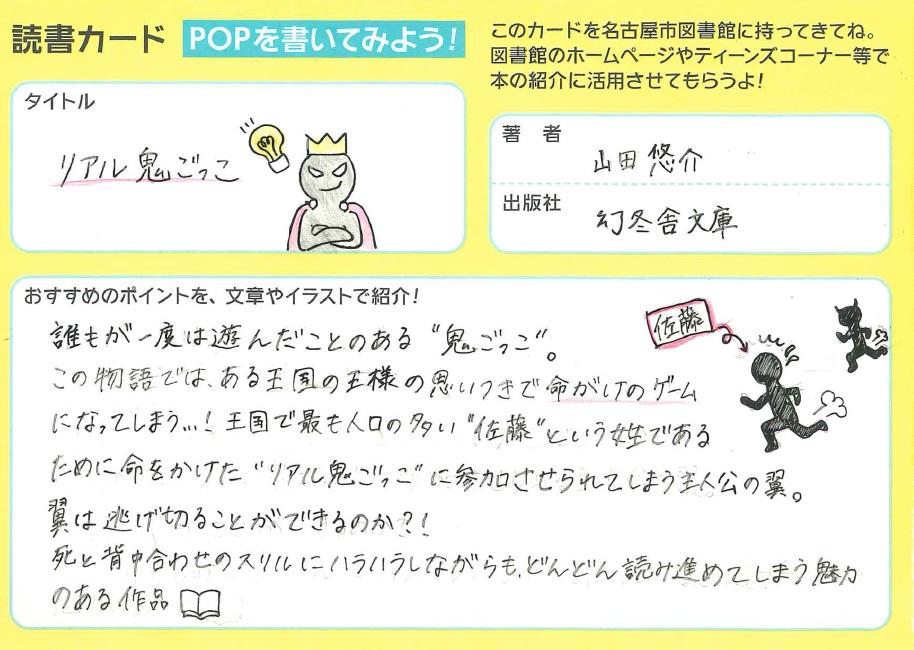 読書カード
POPを書いてみよう!
このカードを名古屋市図書館に持ってきてね。
図書館のホームページやティーンズコーナー等で
本の紹介に活用させてもらうよ!
タイトル
リアル鬼ごっこ
著 者
山田 悠介
出版社
幻冬舎文庫
おすすめのポイントを、文章やイラストで紹介!
誰もが一度は遊んだことのある"鬼ごっこ"。
この物語では、ある王国の王様の思いつきで命がけのゲーム
になってしまう…!王国で最も人口の多い"佐藤"という姓である
ために命をかけた"リアル鬼ごっこ"に参加させられてしまう主人公の翼。
翼は逃げ切ることができるのか?!
死と背中合わせのスリルにハラハラしながらも、どんどん読み進めてしまう魅力
のある作品
佐藤